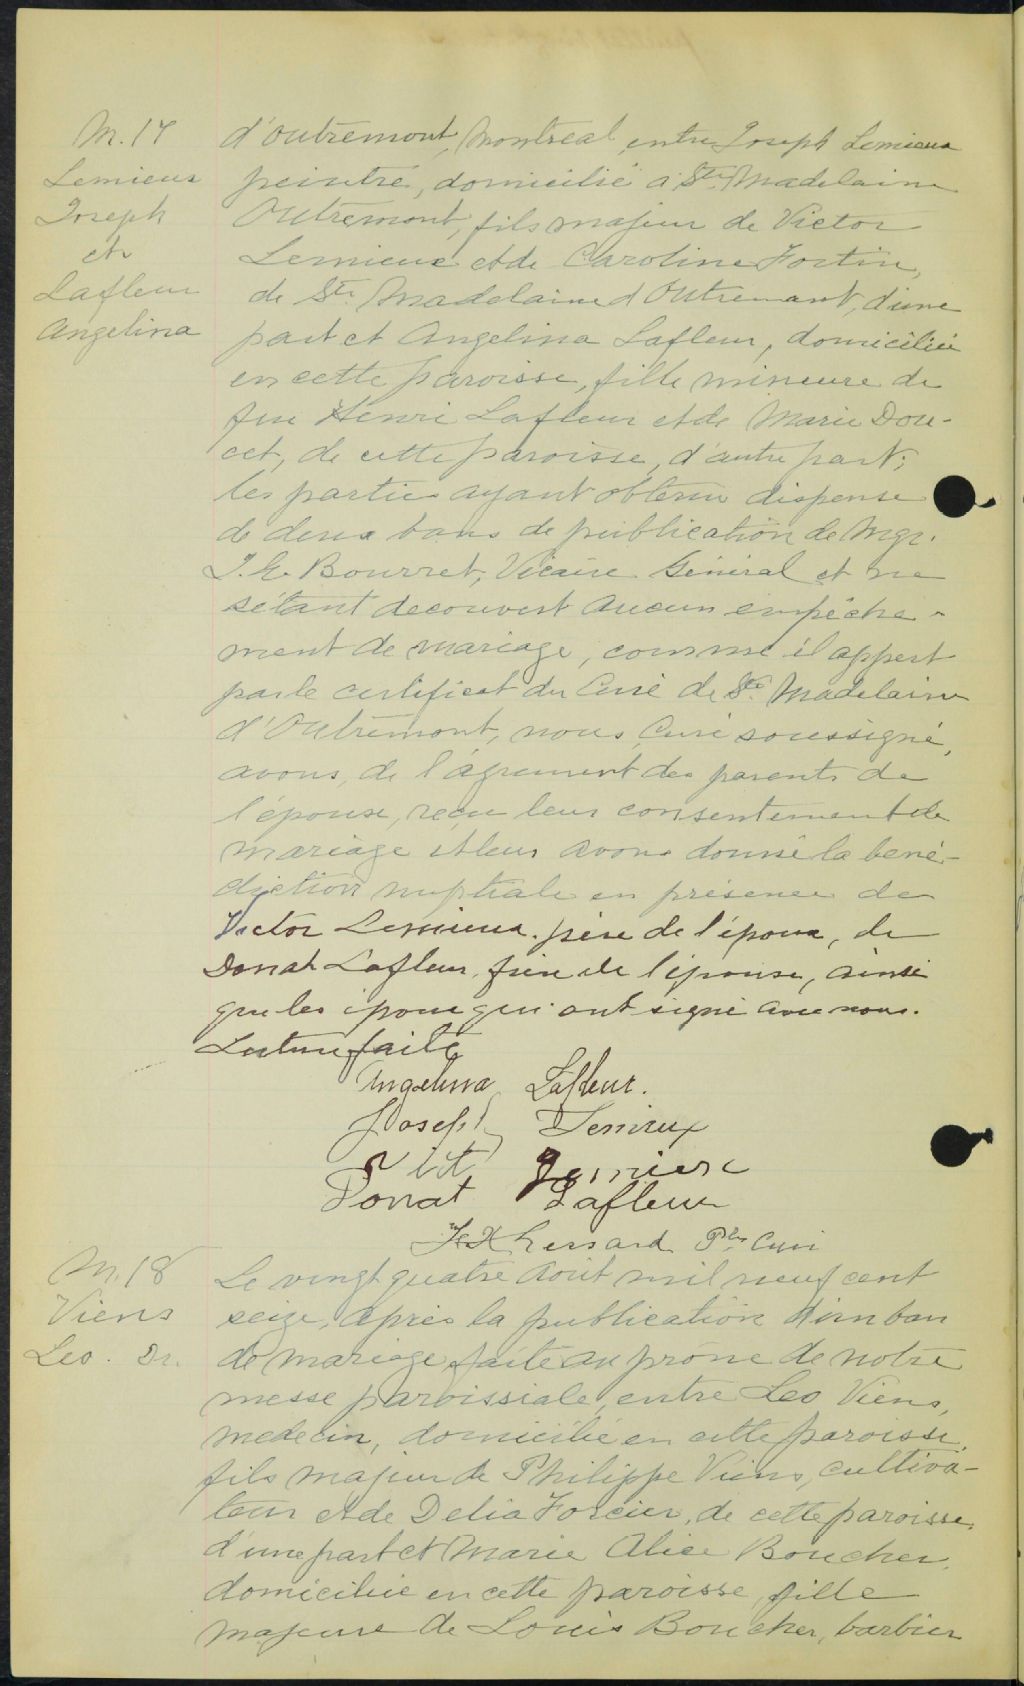 M. 17
Lemieux
Joseph
et
Lafleur
Angelina
d'Outremont, Montréal, entre Joseph Lemieux
peintre, domicilié à Ste Madelaine
Outremont, fils majeur de Victor
Lemieux et de Caroline Fortin,
de Ste Madelaine d'Outremont, d'une
part et Angelina Lafleur, domiciliée
en cette paroisse, fille mineure de
feu Henri Lafleur et de Marie Dou-
cet, de cette paroisse, d'autre part;
les parties ayant obtenu dispense
de deux bans de publication de Mgr.
J. E. Bourret, Vicaire Général et ne
s'étant decouvert aucun empêche-
ment de mariage, comme il appert
par le certificat du Curé de Ste Madelaine
d'Outremont, nous, Curé soussigné,
avons, de l'agrément des parents de
l'épouse, reçu leur consentement de
mariage et leur avons donné la béné-
diction nuptiale en présence de
Victor Lemieux, père de l'époux, de
Donat Lafleur, frère de l'épouse, ainsi
que les époux qui ont signé avec nous.
Lecture faite
Angelina Lafleur.
Joseph Lemieux
Vict Lemieux
Donat Lafleur
Lessard Ptre Curé
M. 18
Viens
Leo. Dr.
Le vingt quatre Août mil neuf cent
seize, après la publication d'un ban
de mariage faite au prône de notre
messe paroissiale, entre Leo Viens,
médecin, domicilié en cette paroisse,
fils majeur de Philippe Viens, cultiva-
teur et de Delia Forcier, de cette paroisse,
d'une part et Marie Alice Boucher,
domiciliée en cette paroisse, fille
majeure de Louis Boucher, barbier